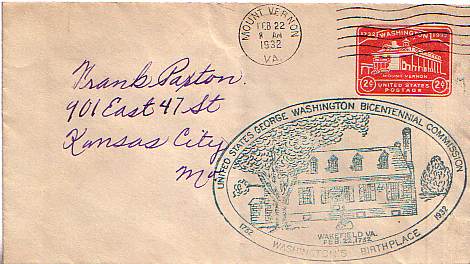 MOUNT VERNON
FEB 22
8 AM
1932
VA.
1732 WASHINGTON 1932
MOUNT VERNON
2¢ UNITED STATES POSTAGE 2¢
Frank Paxton
901 East 47 St
Kansas City
Mo
UNITED STATES GEORGE WASHINGTON BICENTENNIAL COMMISSION
WAKEFIELD VA.
FEB. 22, 1732
1732 WASHINGTON'S BIRTHPLACE 1932